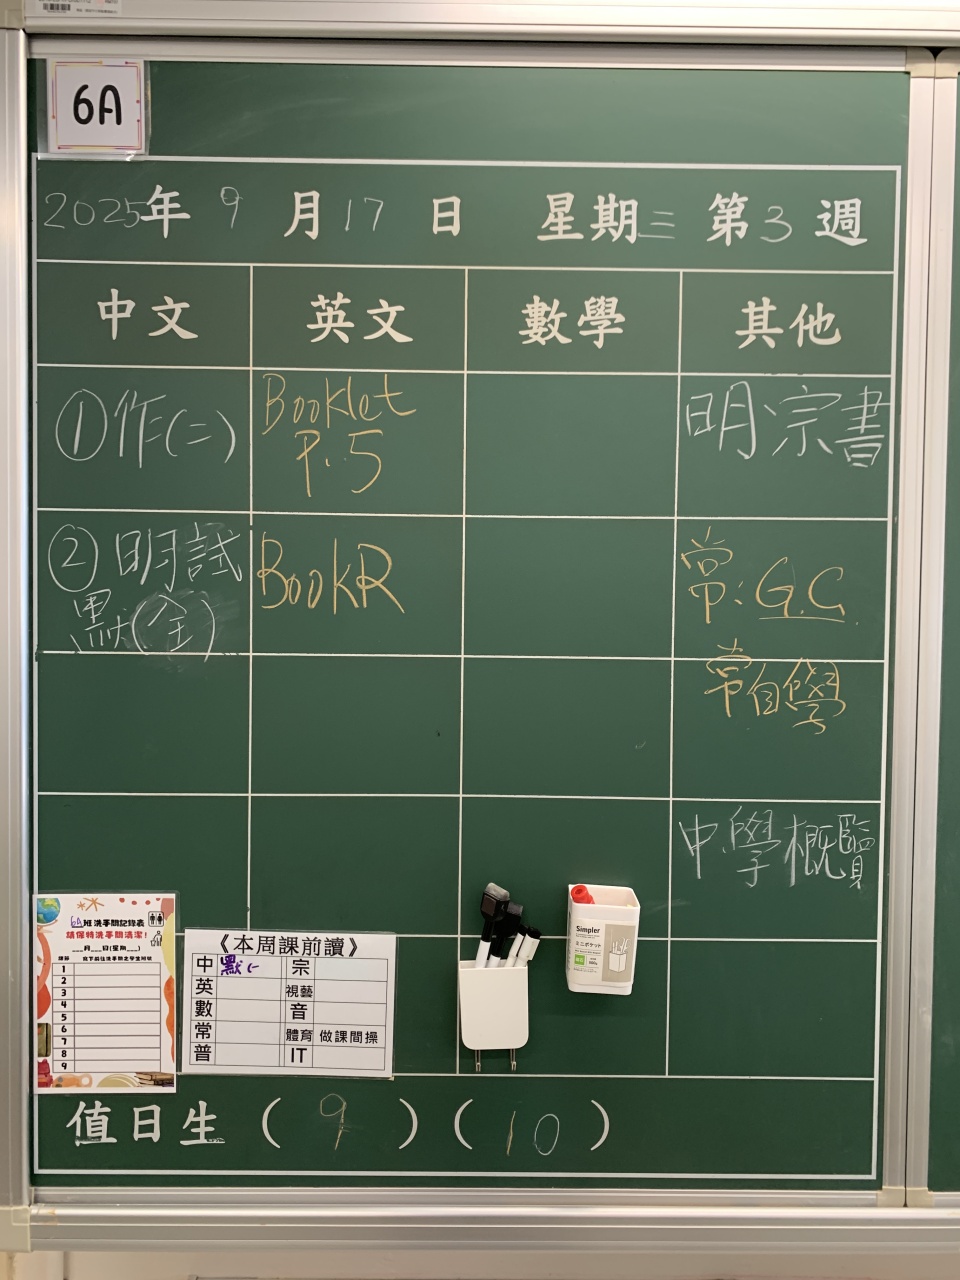 6A
2025年 9 月 17 日 星期三 第 3 週
中文 英文 數學 其他
①作(二)
Booklet
P.5
明宗書
②明試
默(全)
BookR
常:G.C.
常自學
中學概覽
6A班洗手間記錄表
請保持洗手間清潔!
___月___日(星期___)
1
2
3
4
5
6
7
8
9
《本周課前讀》
中 默(一 宗
英 視藝
數 音
常 體育 做課間操
普 IT
Simpler
ミニポケット
值日生 ( 9 ) ( 10 )